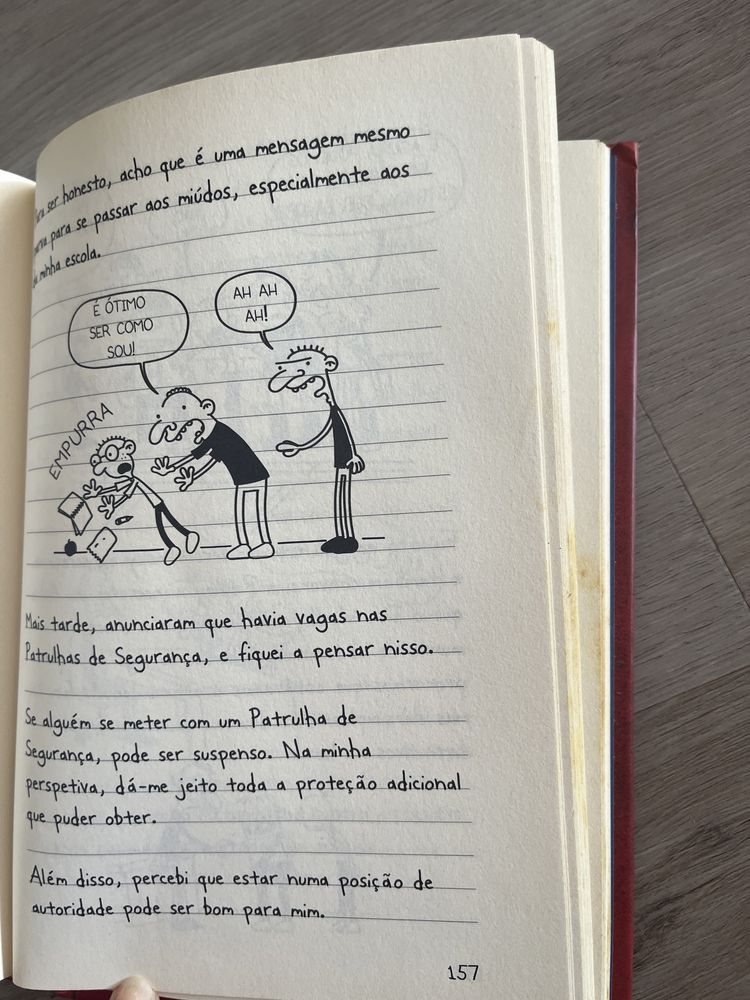 Para ser honesto, acho que é uma mensagem mesmo
para se passar aos miúdos, especialmente aos
da minha escola.
É ÓTIMO
SER COMO
SOU!
AH AH
AH!
EMPURRA
Mais tarde, anunciaram que havia vagas nas
Patrulhas de Segurança, e fiquei a pensar nisso.
Se alguém se meter com um Patrulha de
Segurança, pode ser suspenso. Na minha
perspetiva, dá-me jeito toda a proteção adicional
que puder obter.
Além disso, percebi que estar numa posição de
autoridade pode ser bom para mim.
157